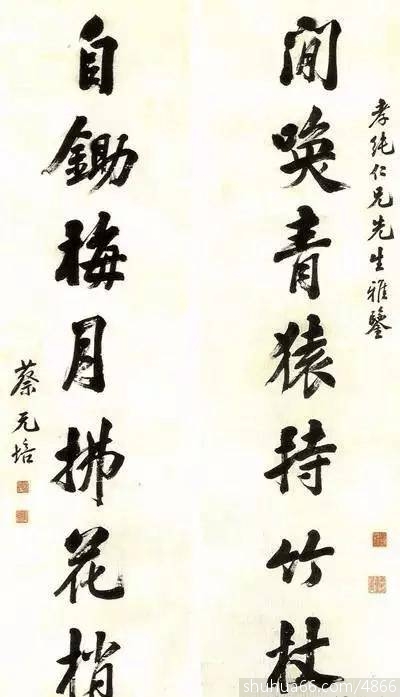 孝纯仁兄先生雅鑒
閒喚青猿持竹杖
自鋤梅月拂花梢
蔡元培
shuhua66.com/4866